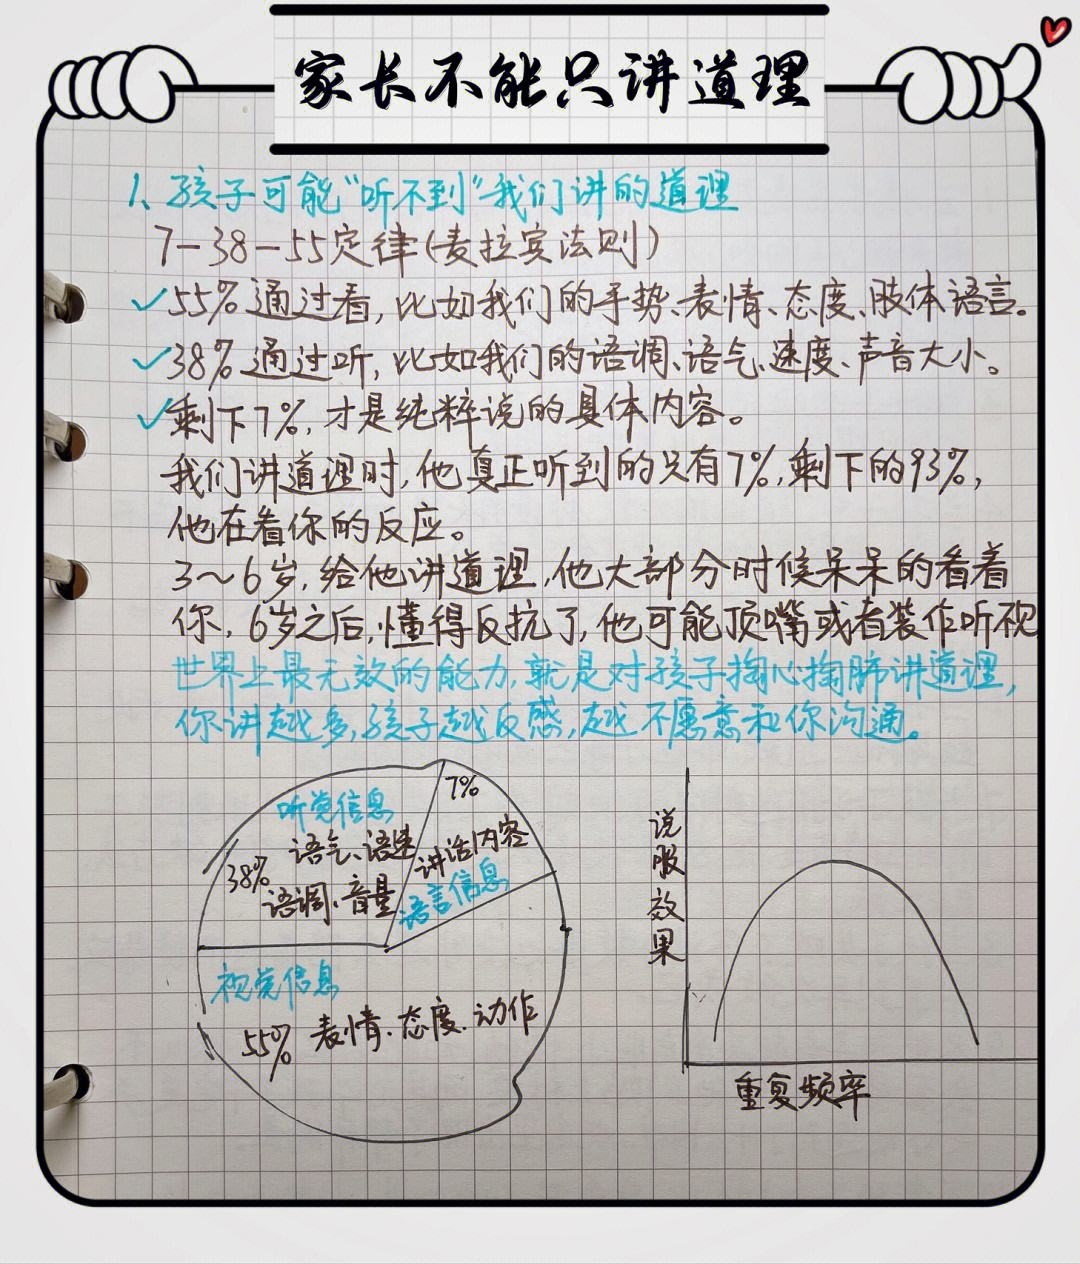 家长不能只讲道理
1、孩子可能"听不到"我们讲的道理
7-38-55定律(麦拉宾法则)
✓55%通过看,比如我们的手势、表情、态度、肢体语言。
✓38%通过听,比如我们的语调、语气、速度、声音大小。
✓剩下7%,才是纯粹说的具体内容。
我们讲道理时,他真正听到的只有7%,剩下的93%,
他在看你的反应。
3~6岁,给他讲道理,他大部分时候呆呆的看着
你,6岁之后,懂得反抗了,他可能顶嘴或者装作听
世界上最无效的能力,就是对孩子掏心掏肺讲道理,
你讲越多,孩子越反感,越不愿意和你沟通。
7%
讲话内容
语言信息
听觉信息
语气、语速
38%
语调、音量
视觉信息
55% 表情、态度、动作
说服效果
重复频率